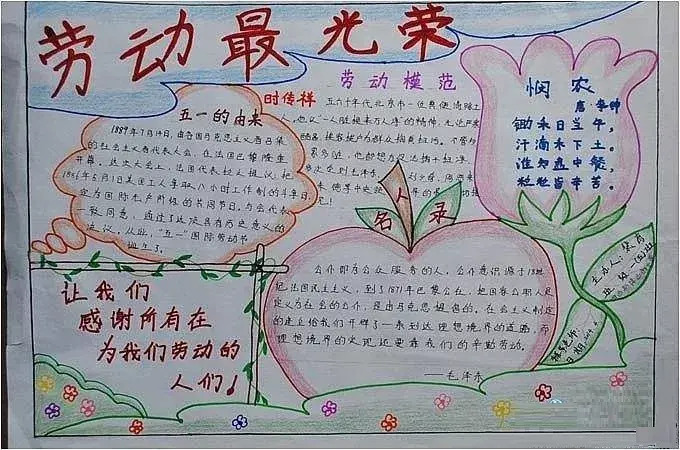 劳动最光荣
五一的由来
1889年7月14日,由各国马克思主义者召集
的社会主义者代表大会,在法国巴黎隆重
开幕。这次大会上,法国代表拉人提议:把
1886年5月1日美国工人争取八小时工作制的斗争日,
定为国际无产阶级的共同节日。与会代表
一致同意,通过了这项具有历史意义的
决议。从此,"五一"国际劳动节
诞生了。
劳动模范
时传祥
五六十年代北京市一位真便淘粪工
人,他以"一人脏换来万人净"的精神,无论严寒
悯农
唐·李绅
锄禾日当午,
汗滴禾下土。
谁知盘中餐,
粒粒皆辛苦。
名人录
公仆即为公众服务的人,公仆意识源于18世
纪法国民主主义,到了1871年巴黎公社,把国家公职人员
定义为社会的公仆,是由马克思提出的,在社会主义制定
的建立给我们开辟了一条到达理想境界的道路,而
理想境界的实现还要靠我们的辛勤劳动。
——毛泽东
让我们
感谢所有在
为我们劳动的
人们!
主办人: